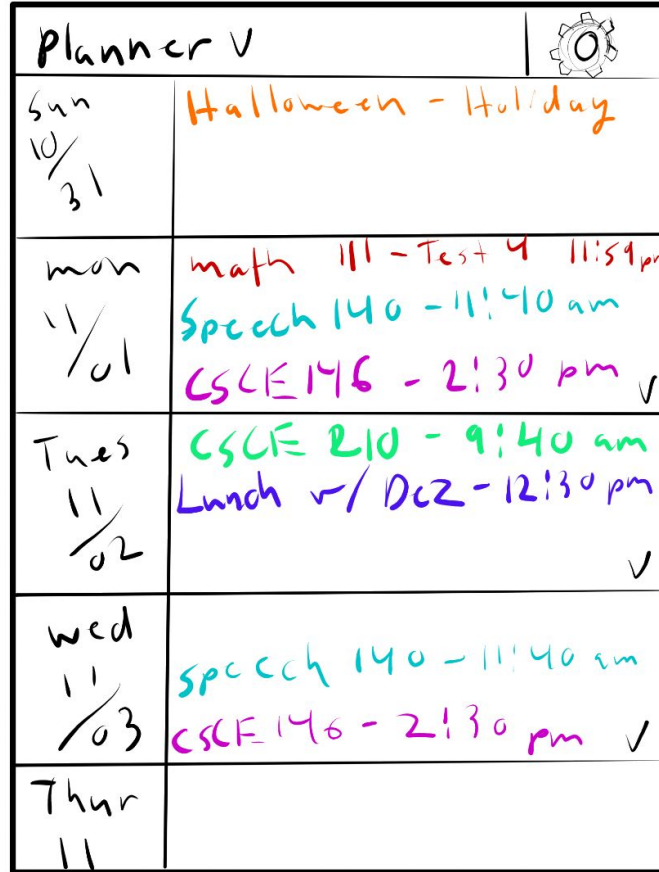 Planner v
Sun
10/31
Halloween - Holiday
mon
11/01
math 111 - Test 4 11:59 pm
Speech 140 - 11:40 am
CSCE 146 - 2:30 pm v
Tues
11/02
CSCE 210 - 9:40 am
Lunch w/ Dez - 12:30 pm
v
wed
11/03
speech 140 - 11:40 am
CSCE 146 - 2:30 pm v
Thur
11